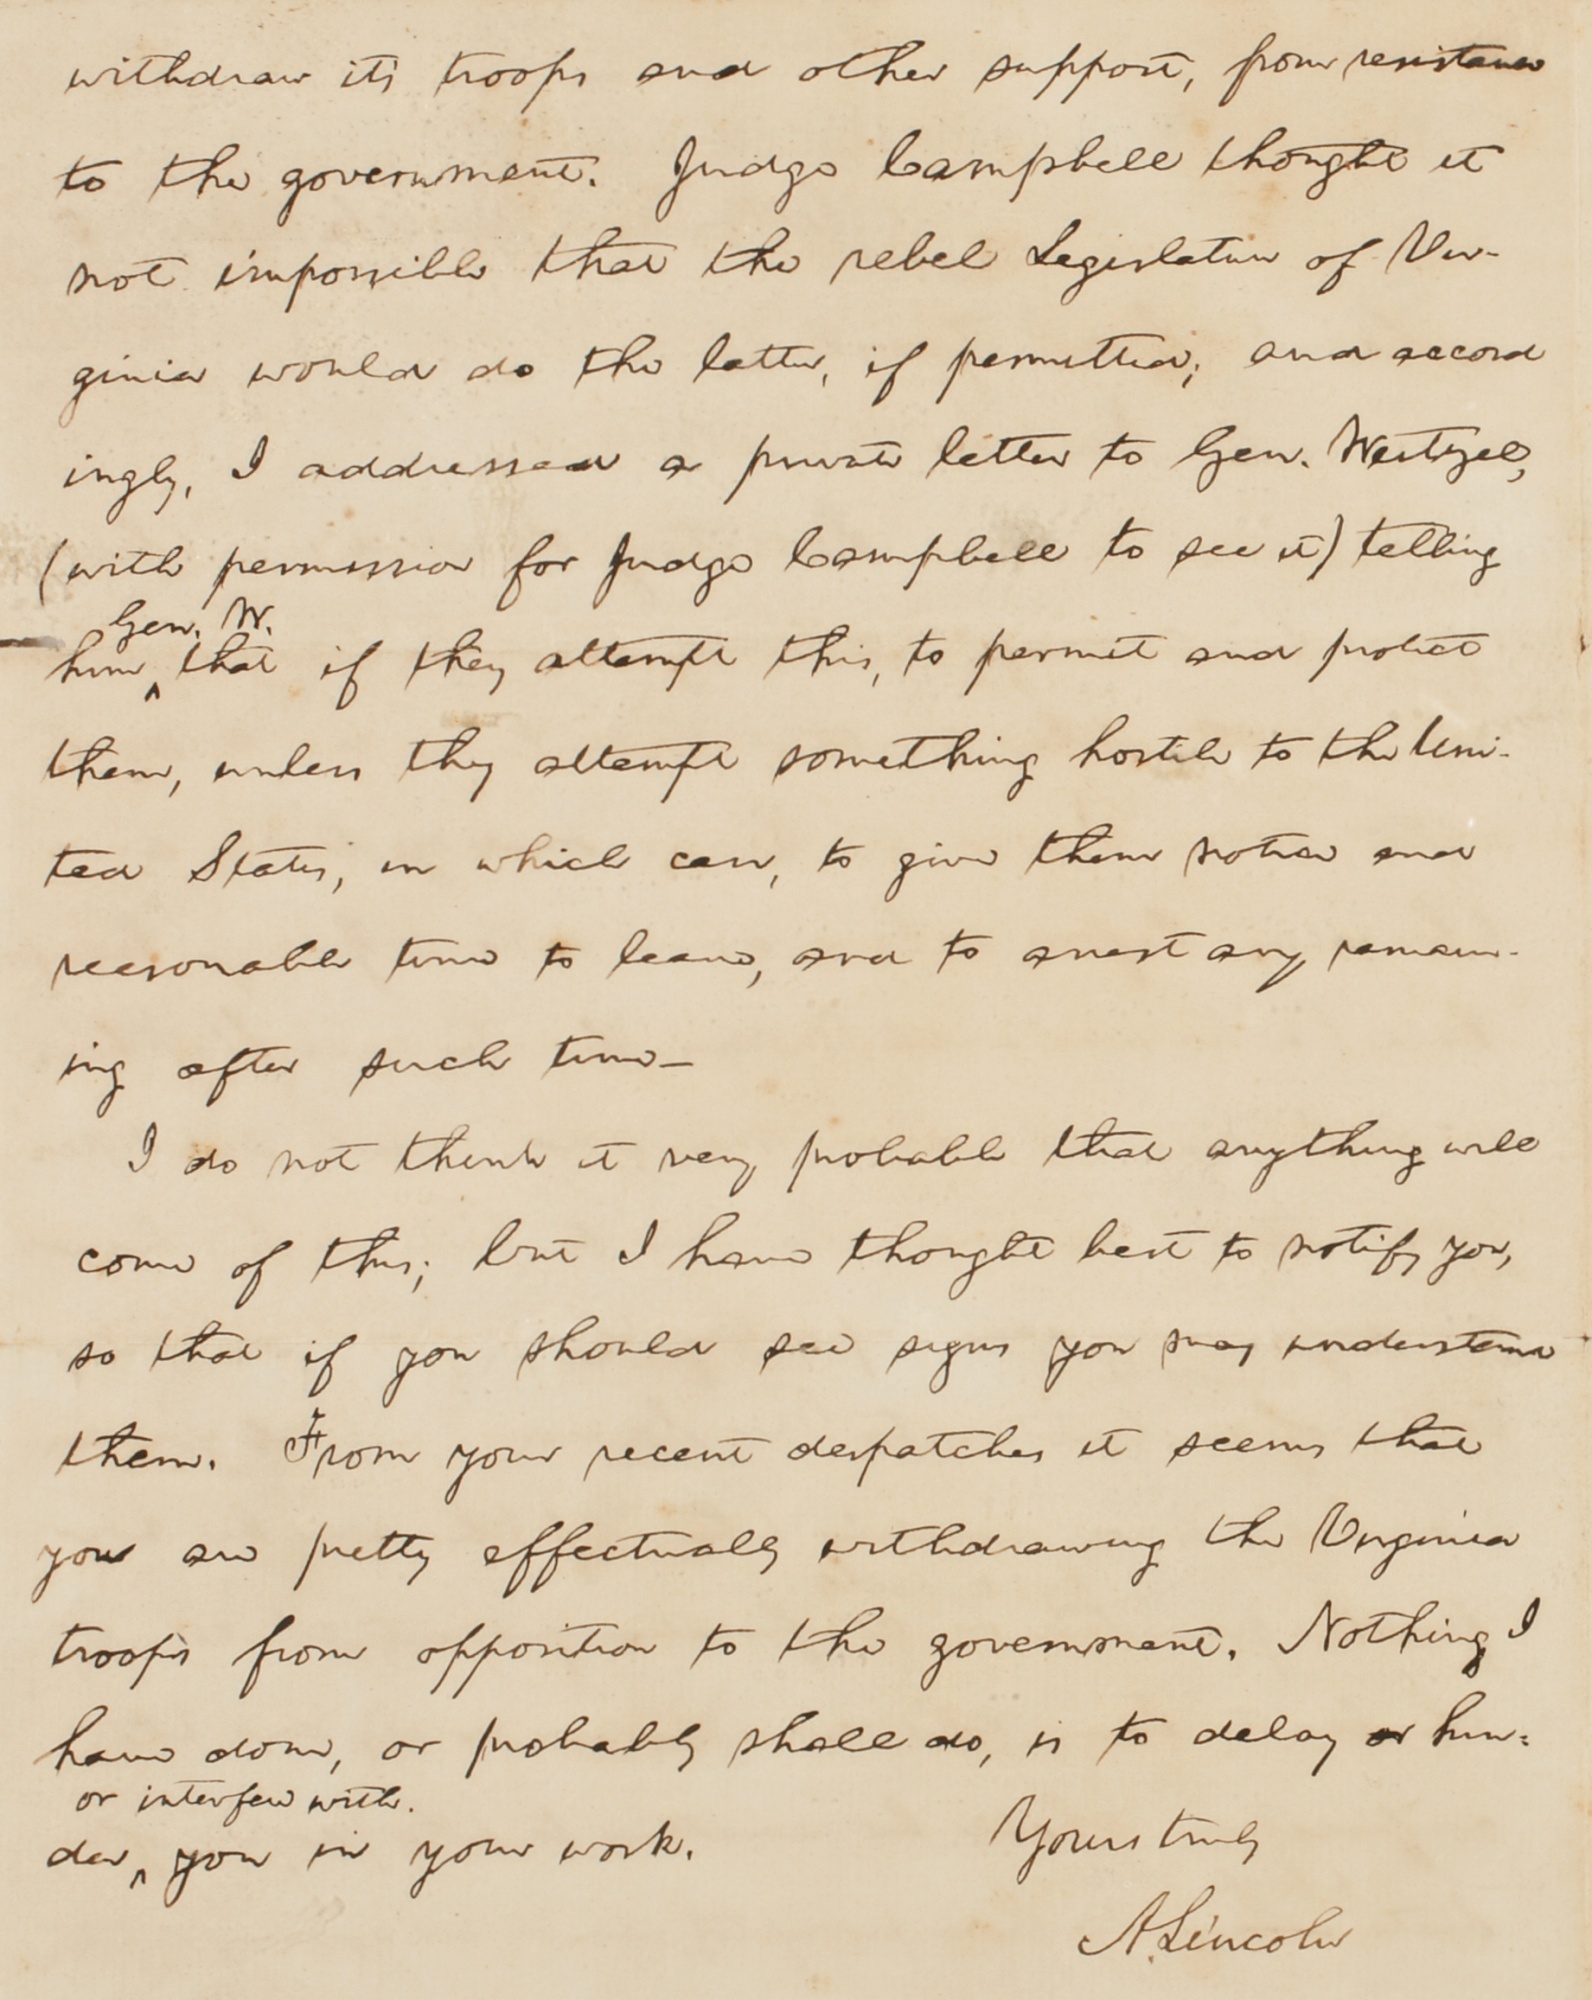 withdraw its troops and other support, from resistance
to the government. Judge Campbell thought it
not impossible that the rebel Legislature of Vir-
ginia would do the latter, if permitted; and accord
ingly, I addressed a private letter to Gen. Weitzel,
(with permission for Judge Campbell to see it) telling
Gen. W.
him ^ that if they attempt this, to permit and protect
them, unless they attempt something hostile to the Uni-
ted States, in which case, to give them notice and
reasonable time to leave, and to arrest any remain-
ing after such time—
I do not think it very probable that anything will
come of this; but I have thought best to notify you,
so that if you should see signs you may understand
them. From your recent despatches it seems that
you are pretty effectually withdrawing the Virginia
troops from opposition to the government. Nothing I
have done, or probably shall do, is to delay or hin-
or interfere with.
der ^ you in your work.
Yours truly
A. Lincoln